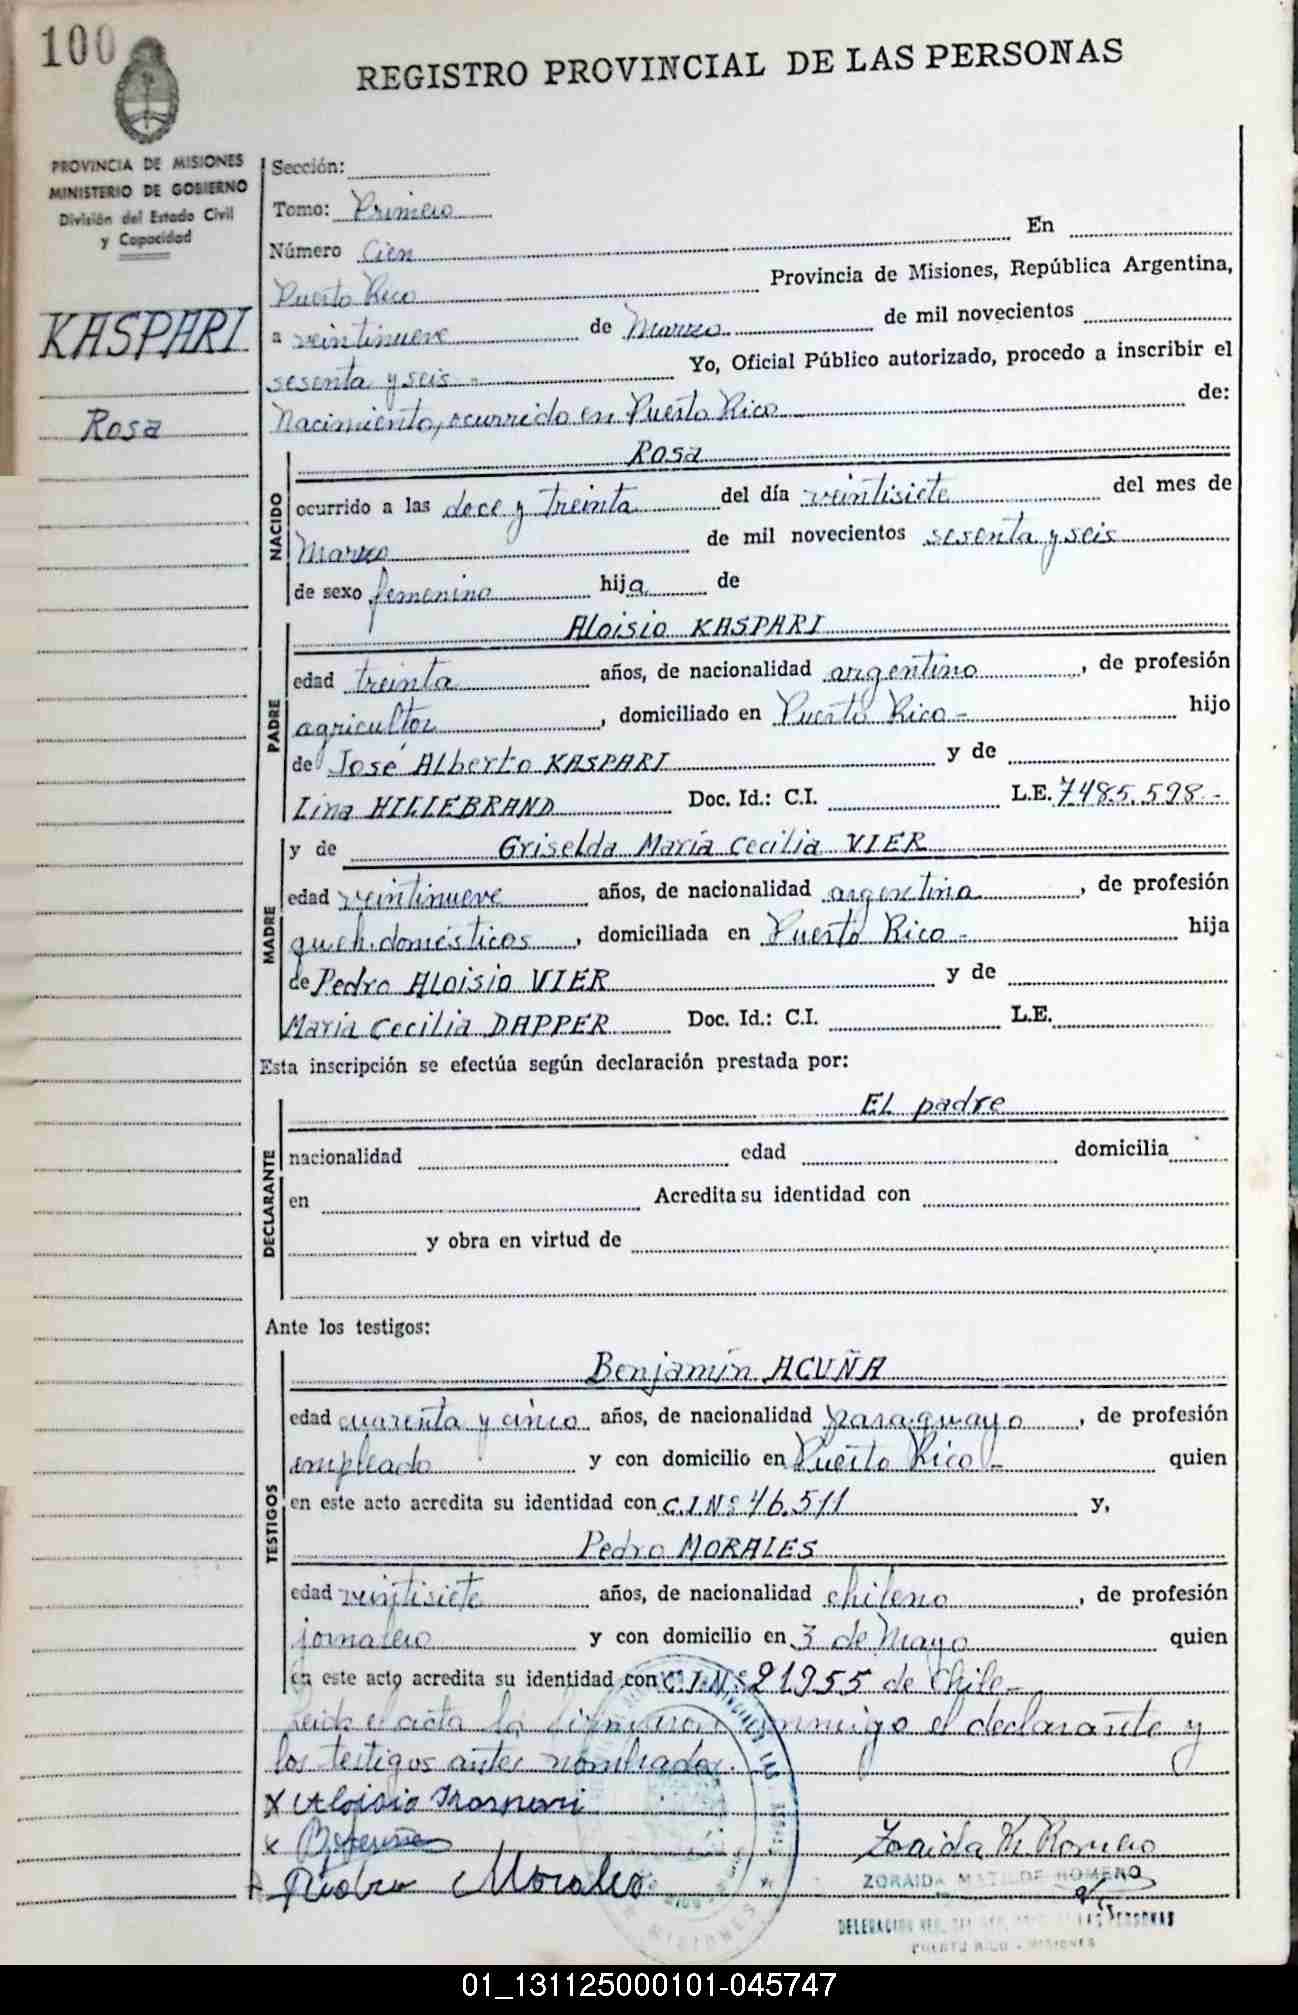 100
REGISTRO PROVINCIAL DE LAS PERSONAS
PROVINCIA DE MISIONES
MINISTERIO DE GOBIERNO
División del Estado Civil
y Capacidad
KASPARI
Rosa
Sección:
Tomo: Primero
Número Cien En
Puerto Rico Provincia de Misiones, República Argentina,
a veintinueve de Marzo de mil novecientos
sesenta y seis - Yo, Oficial Público autorizado, procedo a inscribir el
Nacimiento, ocurrido en Puerto Rico de:
NACIDO
Rosa
ocurrido a las doce y treinta del día veintisiete del mes de
Marzo de mil novecientos sesenta y seis
de sexo femenino hija de
PADRE
Aloisio KASPARI
edad treinta años, de nacionalidad argentino, de profesión
agricultor, domiciliado en Puerto Rico - hijo
de José Alberto KASPARI y de
Lina HILLEBRAND Doc. Id.: C.I. L.E. 7485.598-
MADRE
y de Griselda María Cecilia VIER
edad veintinueve años, de nacionalidad argentina, de profesión
queh. domésticos, domiciliada en Puerto Rico - hija
de Pedro Aloisio VIER y de
María Cecilia DAPPER Doc. Id.: C.I. L.E.
Esta inscripción se efectúa según declaración prestada por:
DECLARANTE
EL padre
nacionalidad edad domicilia
en Acredita su identidad con
y obra en virtud de
Ante los testigos:
TESTIGOS
Benjamín ACUÑA
edad cuarenta y cinco años, de nacionalidad paraguayo, de profesión
empleado y con domicilio en Puerto Rico - quien
en este acto acredita su identidad con C.I.Nº 46.511 y,
Pedro MORALES
edad veintisiete años, de nacionalidad chileno, de profesión
jornalero y con domicilio en 3 de Mayo quien
en este acto acredita su identidad con C.I.Nº 21955 de Chile-
Leida el acta la firmaron conmigo el declarante y
los testigos antes nombrados.
x Aloisio Kaspari
x
Pedro Morales
Zoraida M. Romero
ZORAIDA MATILDE ROMERO
PUERTO RICO - MISIONES
01_131125000101-045747